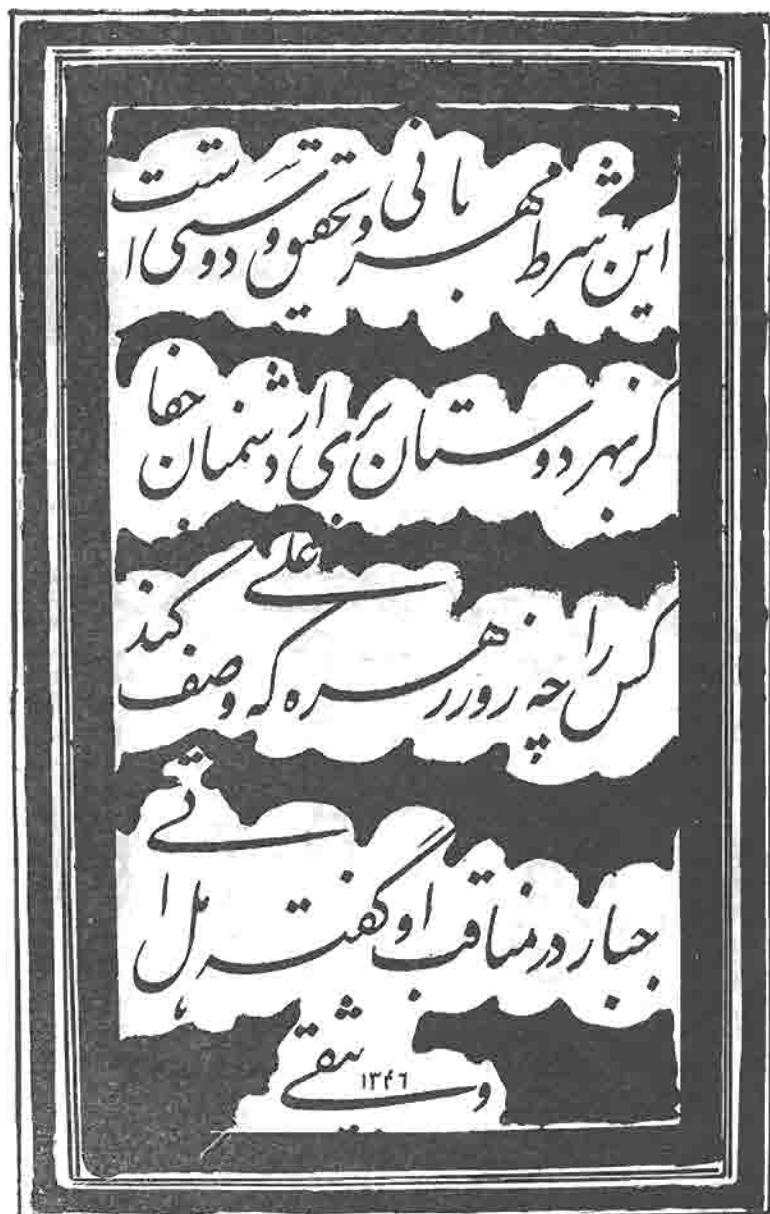 این شرط مهربانی و تحقیق و دوستی است
کز بهر دوستان بری از دشمنان جفا
کس را چه زور زهره که وصف علی کند
جبار در مناقب او گفته هل اتی
وثیقی ۱۳۴۶